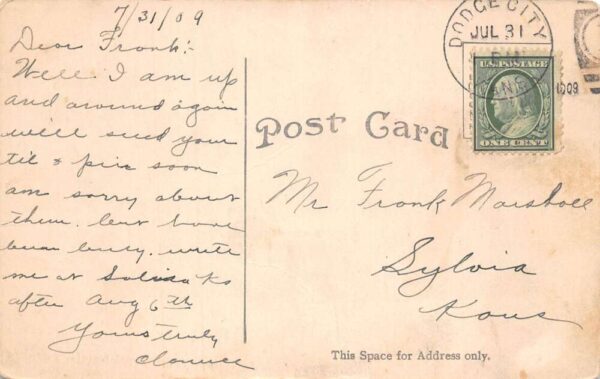 7/31/09
Dear Frank:-
Well I am up
and around again
will send your
til & pin soon
am sorry about
them, but have
been busy. write
me at Salina Ks
after Aug 6th
Yours truly
Clarence
Post Card
DODGE CITY
JUL 31
KANS.
1909
U.S. POSTAGE
ONE CENT
Mr Frank Marshall
Sylvia
Kans
This Space for Address only.